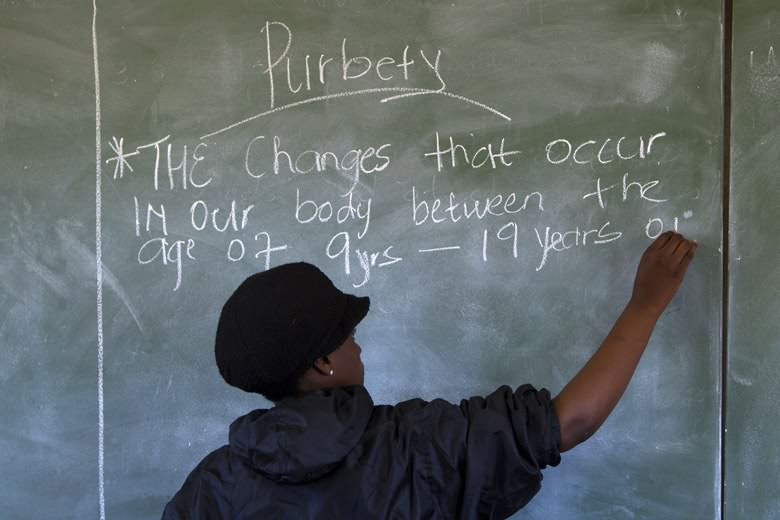 Purbety
* THE Changes that occur
IN our body between the
age of 9yrs — 19 years